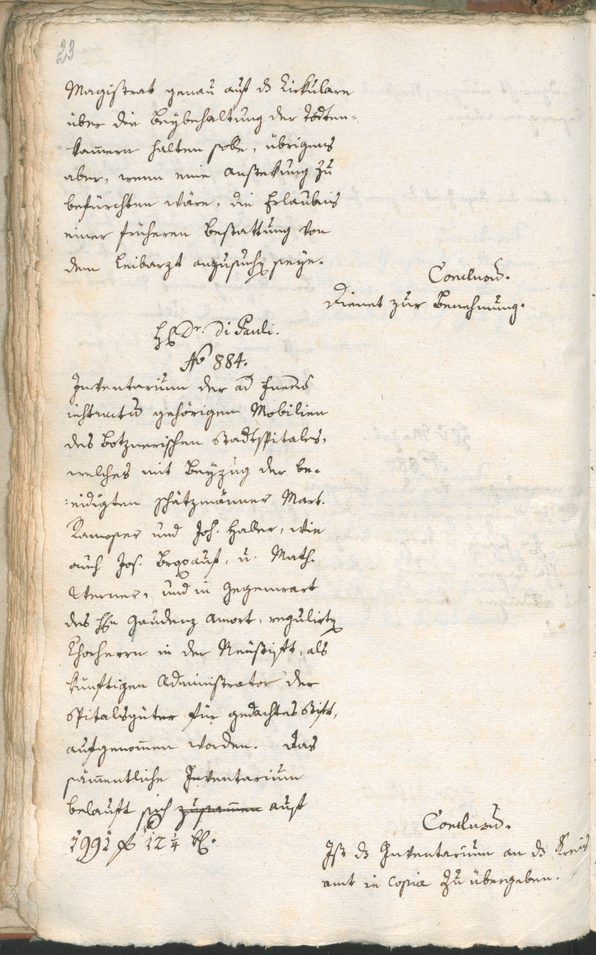 23
Magistrat genau auf ds Zirkulare
über die Beybehaltung der Todten-
kam̅ern halten solle, übrigens
aber, wenn eine Ansteckung zu
befürchten wäre, die Erlaubnis
einer früheren Bestattung von
dem Leibarzt anzusuchen seye.
Conclusum.
Dienet zur Benehmung.
H. Dr. Di Pauli.
No 884.
Inventarium der ad
gehörigen Mobilien
des Botznerischen Stadtspitales,
welches mit Beyzug der be-
:eidigten Schätzmänner Mart.
Ramoser und Joh. Haller, wie
auch Jos. u. Math.
und in Gegenwart
des Hn Gaudenz Amort, regulirten
Chorherrn in der Neustift, als
künftigen Administrator der
Spitalsgüter für gedachtes Stift,
aufgenom̅en worden. Das
sämmentliche Inventarium
belauft sich zusammen auf
1991 f 12¼ kr.
Conclusum.
Ist ds Inventarium an ds Kreis
amt in Copia zu übergeben.